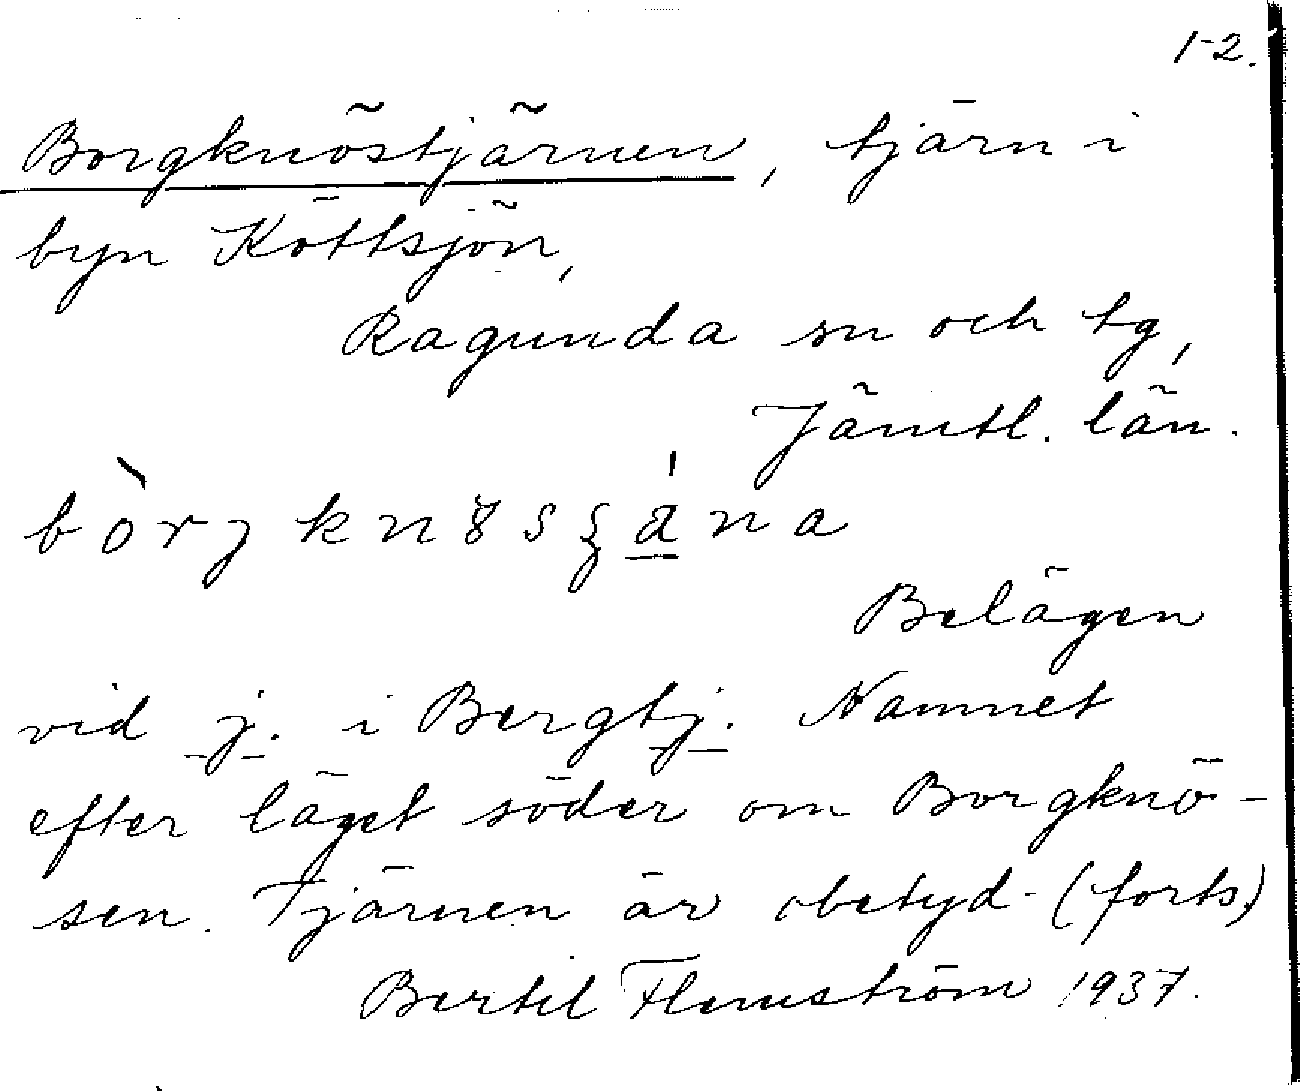 1-2.
Borgknöstjärnen, tjärn i
byn Köttsjön,
Ragunda sn och tg,
Jämtl. län.
Belägen
vid j. i Bergtj. Namnet
efter läget söder om Borgknö-
sen. Tjärnen är obetyd- (forts.)
Bertil Flemström 1937.